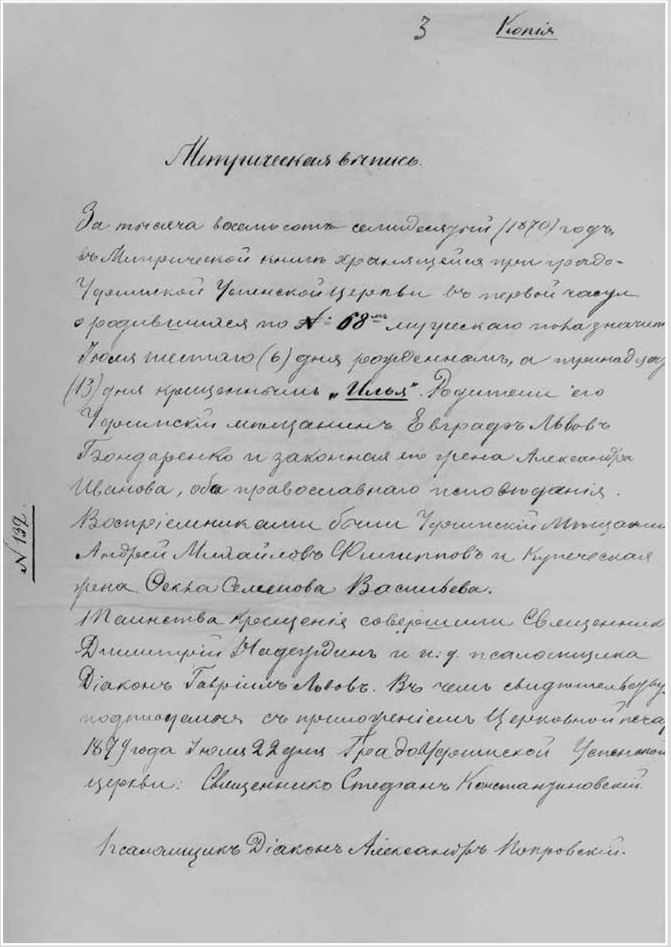 3 Копія
Метрическая выпись.
За тысяча восемьсотъ семидесятый (1870) годъ,
въ Метрической книгѣ хранящейся при градо-
Уфимской Успенской Церкви въ первой части
о родившихся по № 68мъ мужескаго пола значит
Іюля шестаго (6) дня рожденнымъ, а тринадцат
(13) дня крещеннымъ „Илья". Родители его
Уфимскій мѣщанинъ Евграфъ Львовъ
Бондаренко и законная его жена Александра
Иванова, оба православнаго исповѣданія.
Воспріемниками были Уфимскій Мѣщанин
Андрей Михайловъ Филипповъ и Купеческая
жена Ѳекла Семенова Васильева.
Таинства крещенія совершили Священник
Димитрій Надеждинъ и и. д. псаломщика
Діаконъ Гавріилъ Львовъ. Въ чемъ свидѣтельству
подписуемся съ приложеніемъ Церковной печа
1879 года Іюля 22 дня Градо Уфимской Успенской
церкви: Священникъ Стефанъ Константиновскій
Псаломщикъ Діаконъ Александръ Покровскій.
№ 132.